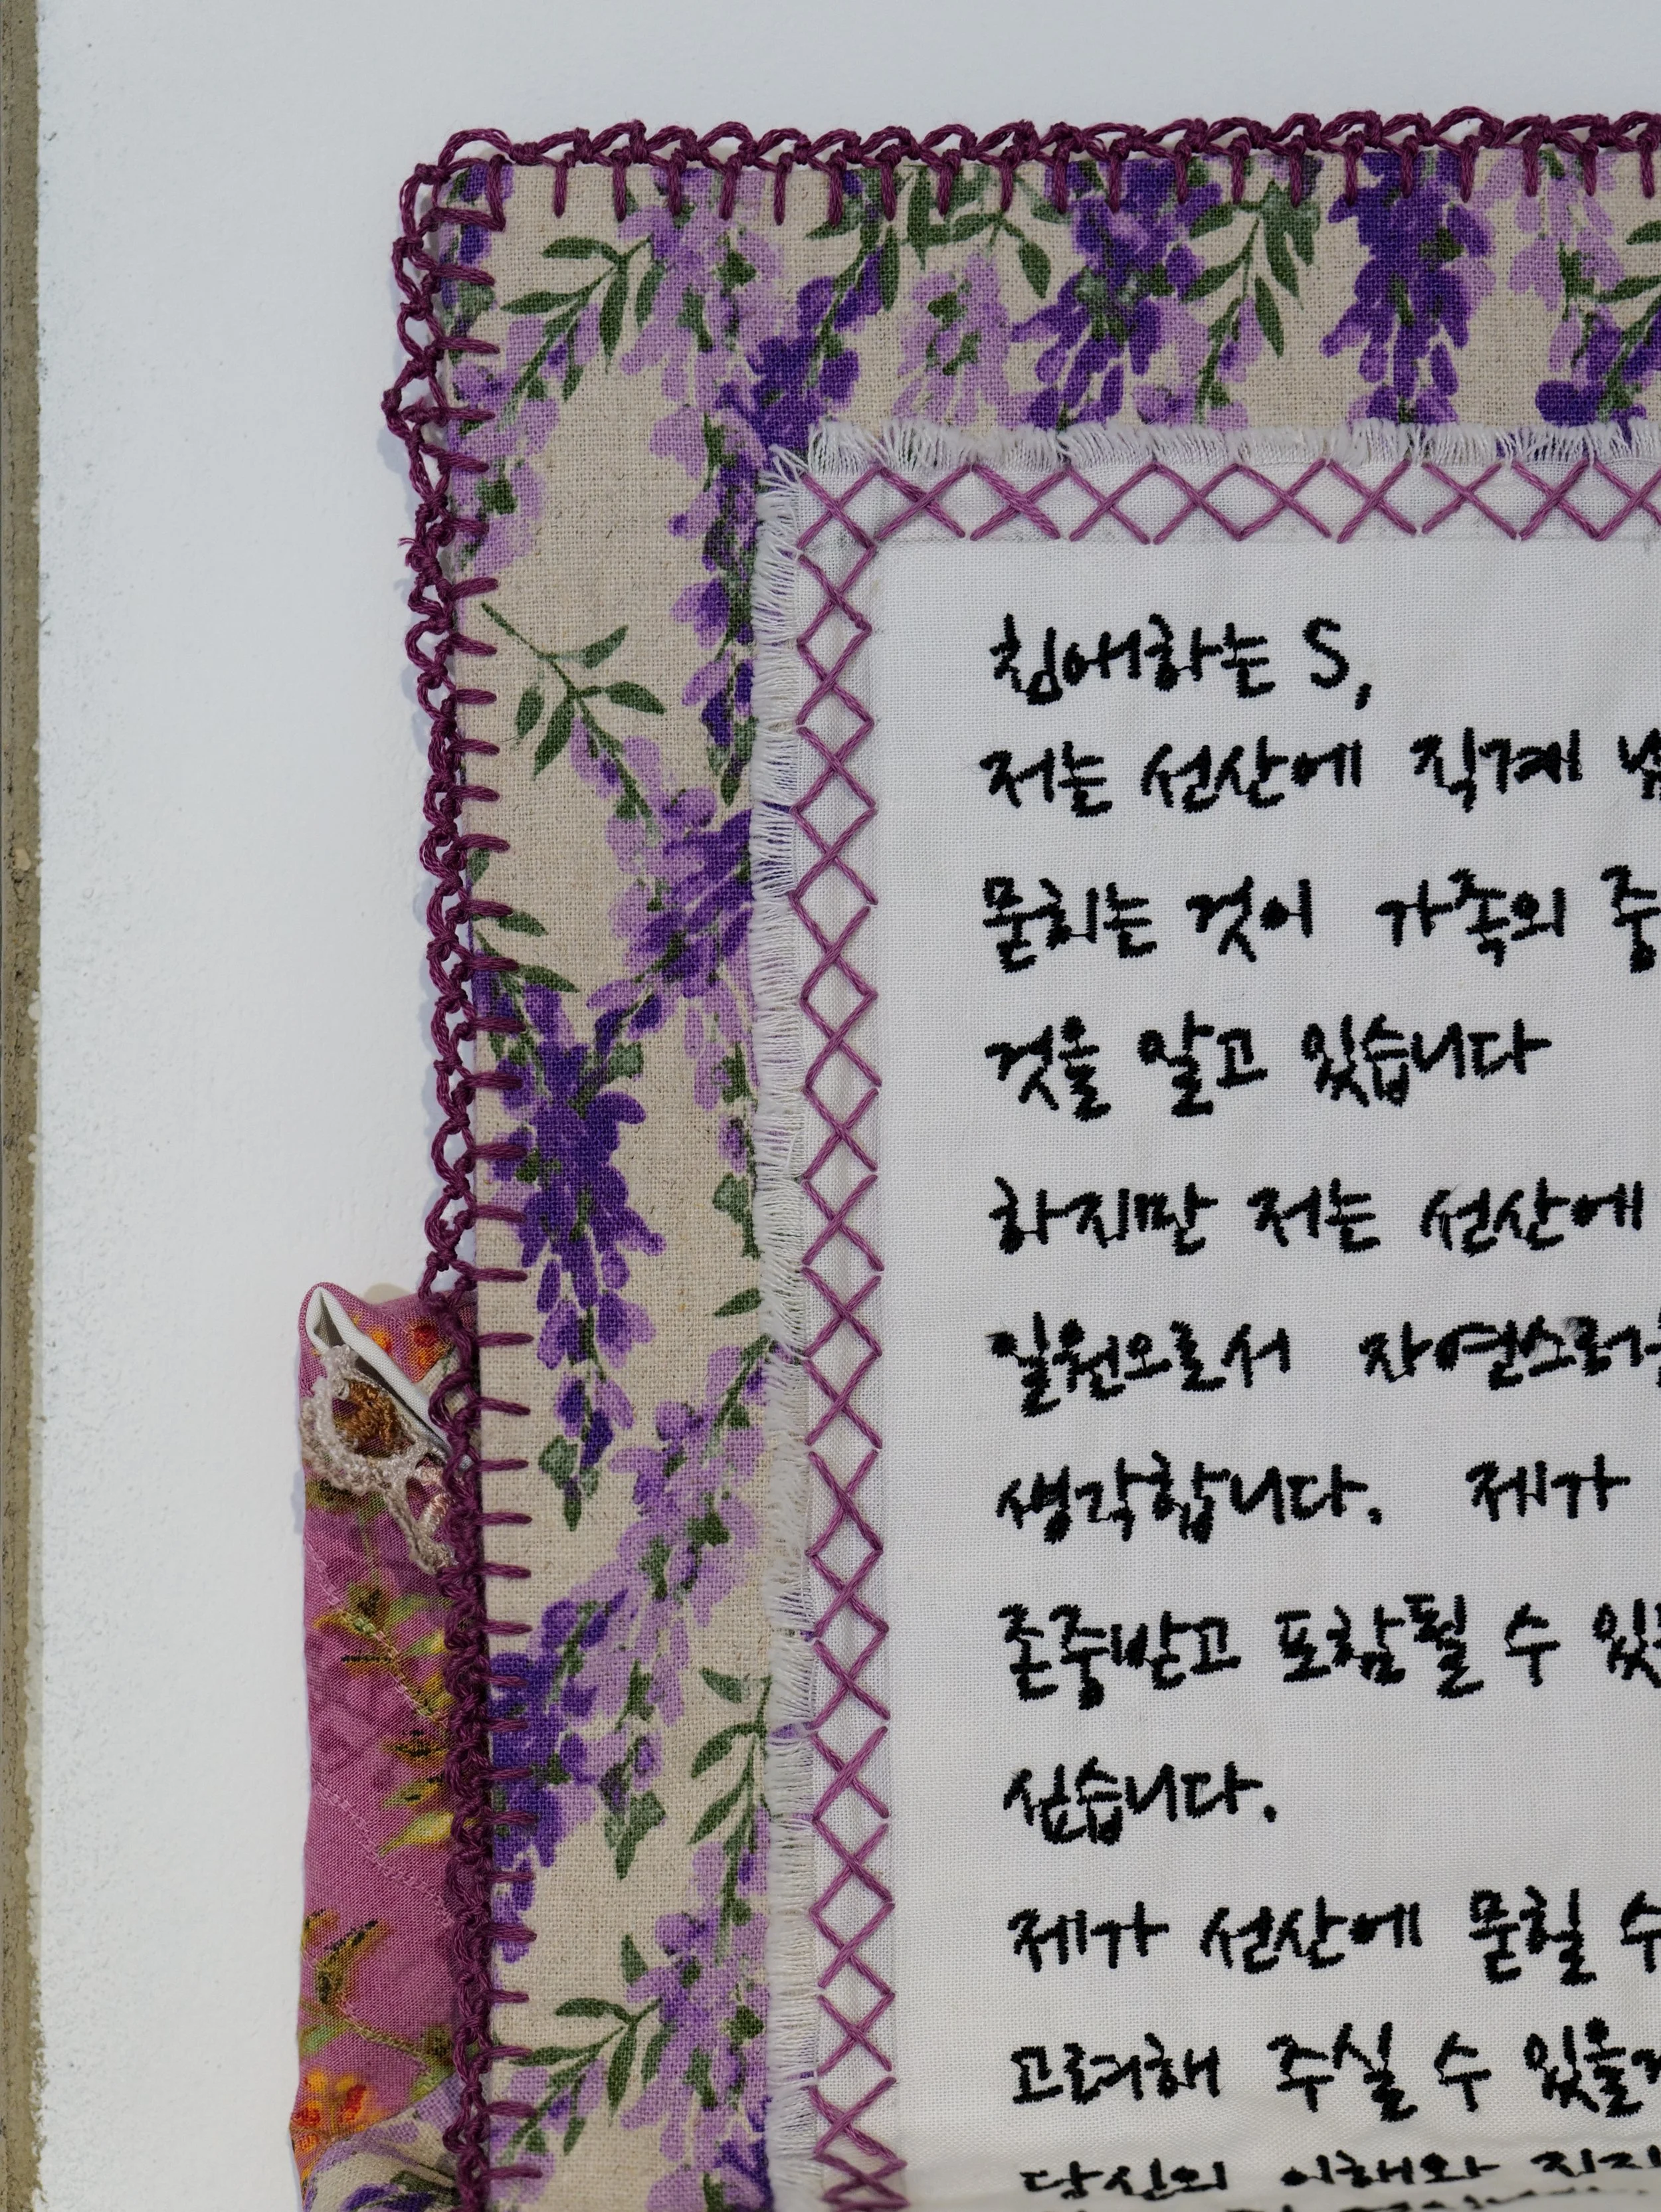 친애하는 S,
저는 선산에 직계
묻히는 것이 가족의 중
것을 알고 있습니다
하지만 저는 선산에
일원으로서 자연스러
생각합니다. 제가
존중받고 포함될 수
싶습니다.
제가 선산에 묻힐 수
고려해 주실 수 있을
당신의 이해와